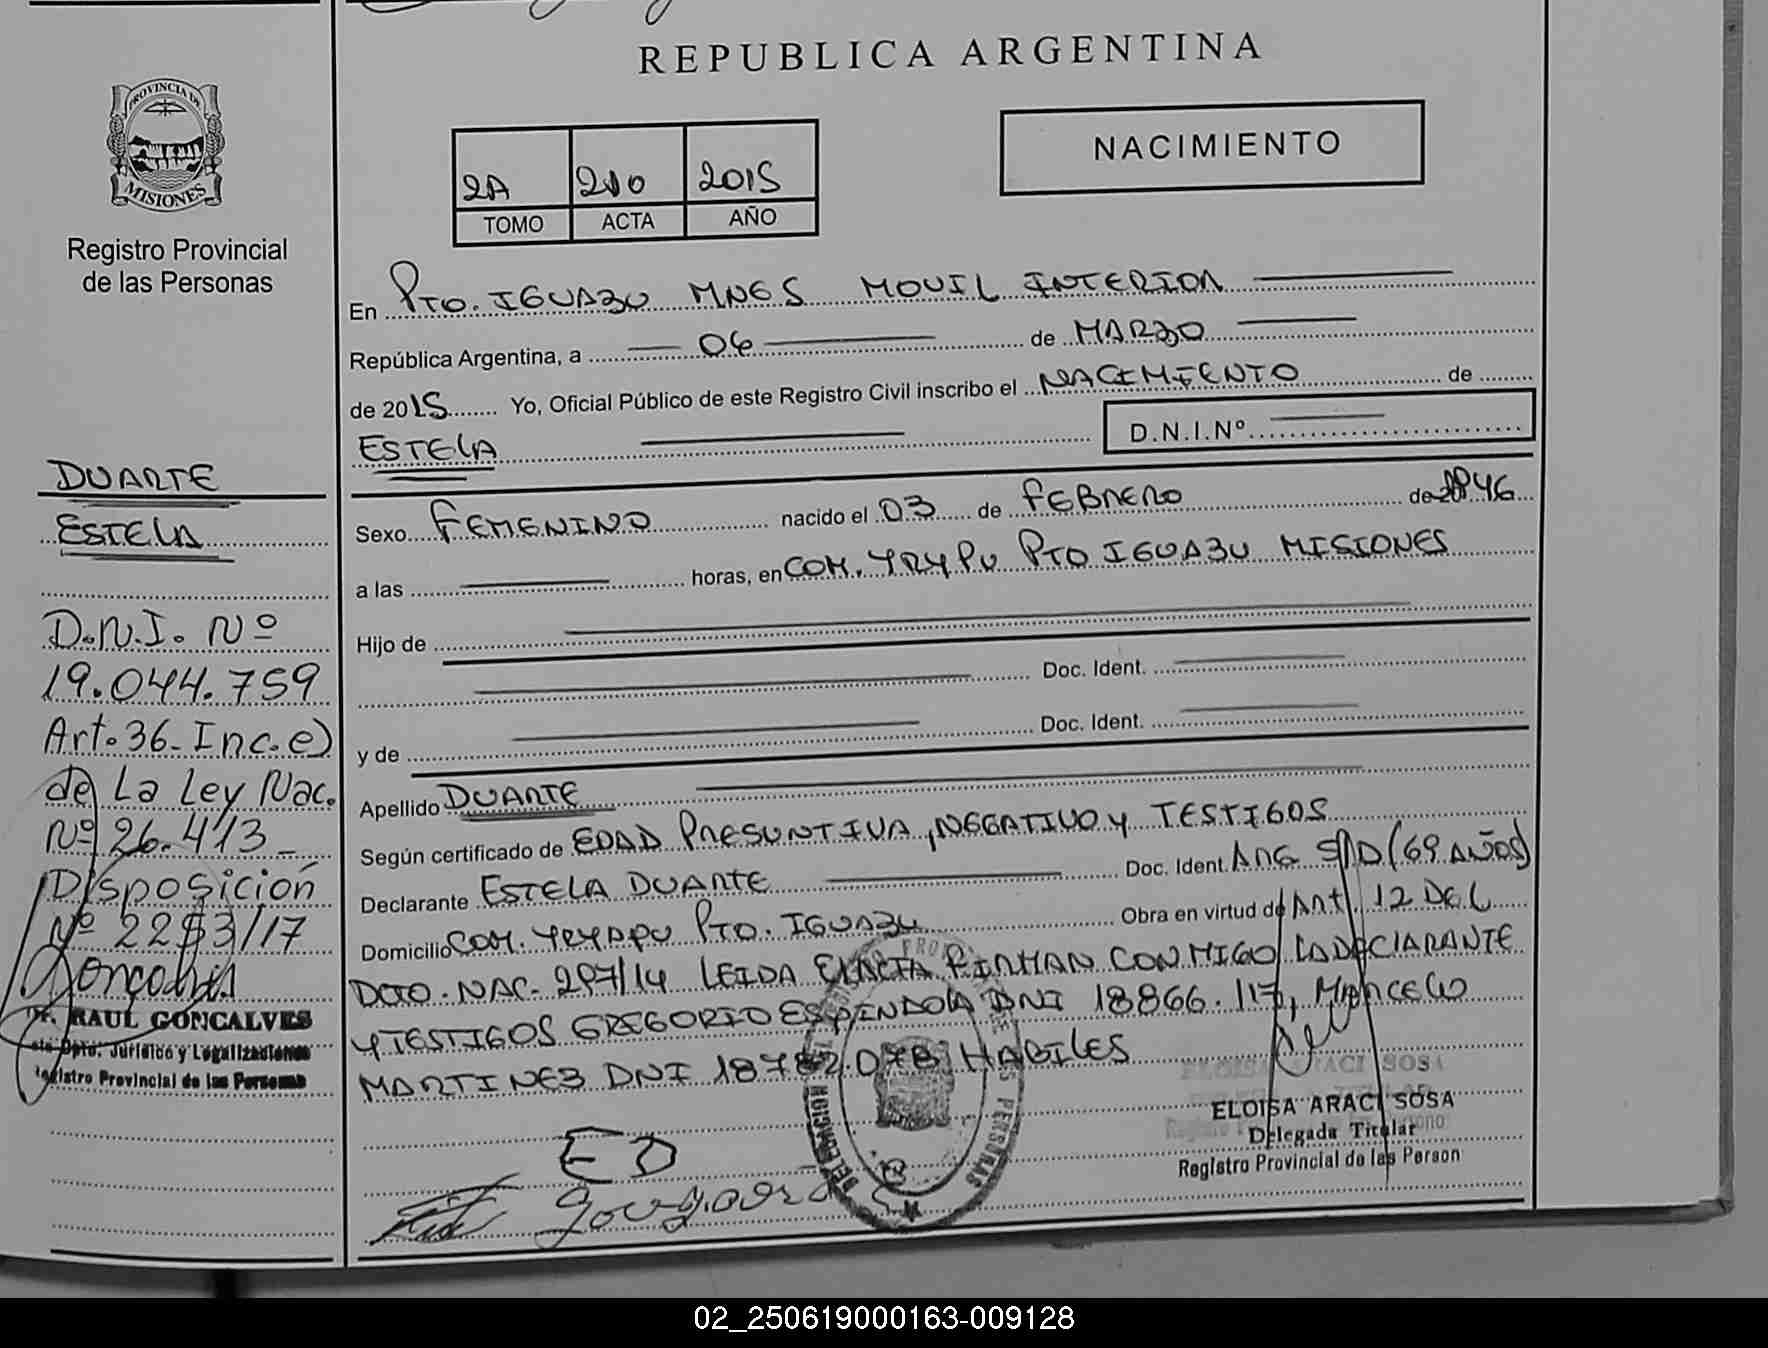 REPUBLICA ARGENTINA
PROVINCIA DE
MISIONES
Registro Provincial
de las Personas
NACIMIENTO
2A 210 2015
TOMO ACTA AÑO
En Pto. IGUAZU MNES MOVIL INTERIOR
República Argentina, a 06 de MARZO
de 2015 Yo, Oficial Público de este Registro Civil inscribo el NACIMIENTO de
ESTELA D.N.I.Nº
Sexo FEMENINO nacido el 03 de FEBRERO de 1946
a las horas, en COM. YRYPU PTO IGUAZU MISIONES
Hijo de
Doc. Ident.
y de Doc. Ident.
Apellido DUARTE
Según certificado de EDAD PRESUNTIVA, NEGATIVO Y TESTIGOS
Declarante ESTELA DUARTE Doc. Ident. ARG S/D (69 AÑOS)
Domicilio COM. YRYAPU PTO. IGUAZU Obra en virtud de Art. 12 DEL
DCTO. NAC. 297/14 LEIDA EL ACTA FIRMAN CONMIGO LA DECLARANTE
Y TESTIGOS GREGORIO ESPINDOLA DNI 18866.117, MARCELO
MARTINEZ DNI 18782.078 HABILES
ED
ELOISA ARACI SOSA
Delegada Titular
Registro Provincial de las Person
DUARTE
ESTELA
D.N.I. Nº
19.044.759
Art. 36 - Inc. e)
de La Ley Nac.
Nº 26.413 -
Disposición
Nº 2253/17
Goncalves
Dr. RAUL GONCALVES
Dpto. Jurídico y Legalizaciones
Registro Provincial de las Personas
02_250619000163-009128